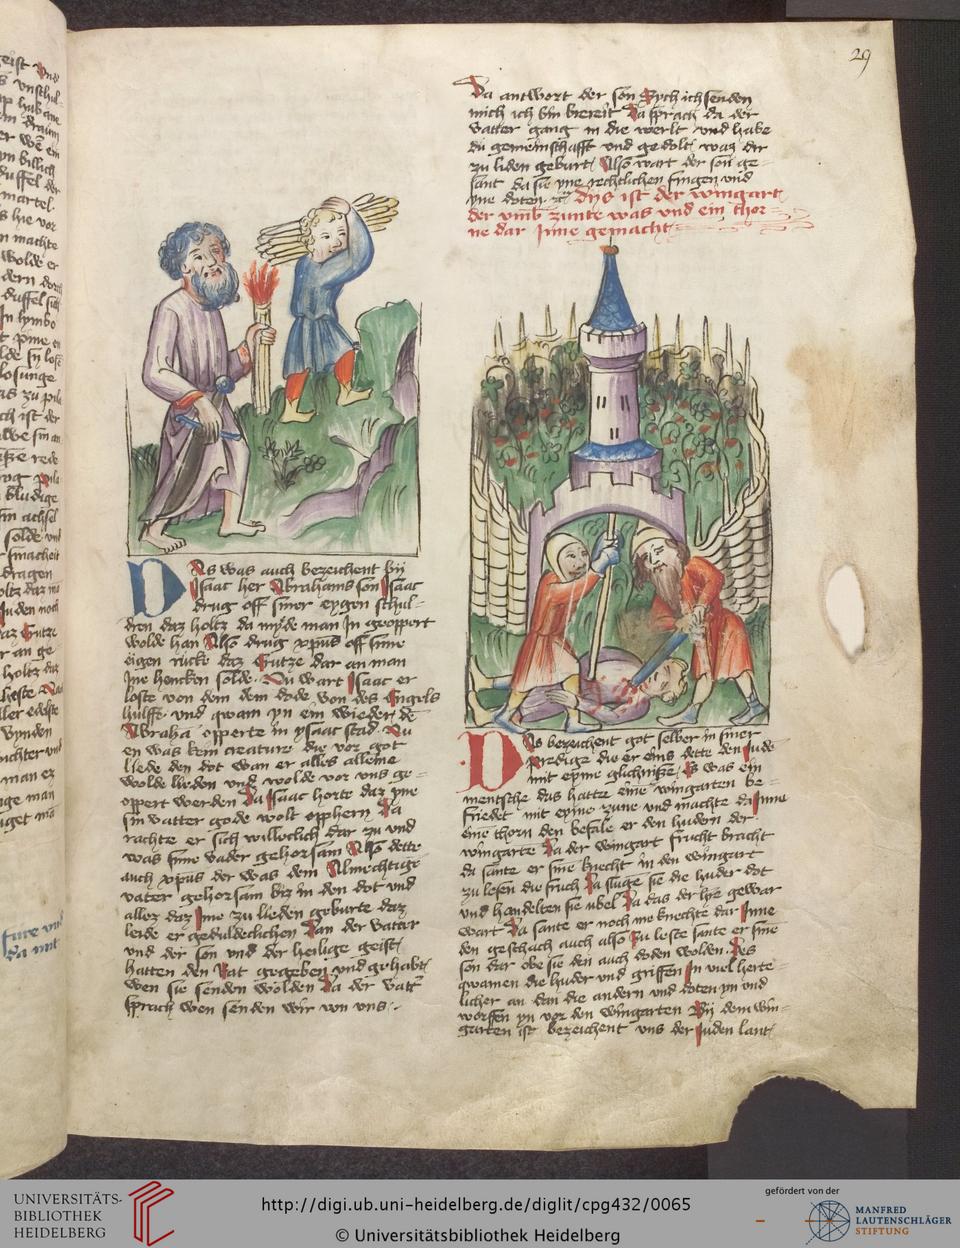 29
Da antwort der son Sych ich senden
mich ich bin bereit Da sprach da der
vatter gang in die werlt und habe
du gemeinschafft und gedolt waz dir
zu liden geburt Also wart der son ge-
sant da sie yne rechtlichen fingen und
yne doten Dys ist der wingart
der umb zunte was und ein thor-
ne dar Inne gemacht
Das was auch bezeichent bij
Isaac her Abrahams son Isaac
drug off siner eygen schul-
dren daz holtz da myde man In geoppert
wolde han Also drug xpus off sime
eigen rucke daz Crutze dar an man
Ine hencken solde Nu wart Isaac er
loste von dem dode von des Engels
hulffe und qwam yn ein wieder de
Abraha opperte in ysaac stad Nu
en was kein creature die vor got
liede den dot wan er alles alleine
wolde lieden und wolde vor uns ge-
oppert werden Da Isaac horte daz yne
sin vatter gode wolt opphern Da
rachte er sich williclich dar zu und
was sime vader gehorsam Also dette
auch xpus der was dem Almechtige
vater gehorsam biz in den dot und
allez daz Ime zu lieden geburte daz
leide er gedulteclichen Dan der vatter
und der son und der heilige geist
hatten den Rat gegeben und gehabt
wen sie senden wolden Da der vatter
sprach wen senden wir von uns
Das bezeichent got selber in siner
predige die er eins dette den Jude
mit eyme glichniße Es was ein
mentsche das hatte eine wingarten be-
friedet mit eyme zune und machte da Inne
eine thorn den befale er den hudern der
wingarte Da der wingart frucht bracht
da sante er sine knecht in den wingart
zu lesen die fruch Da sluge sie die huder dot
und handelten sie ubel Da das der hre gewar
wart Da sante er noch me knechte dar Inne
den geschach auch also Zu leste sante er sine
son dar obe sie den auch doden wolden Des
qwamen die huder und griffen In viel herte-
licher an dan die andern und doten yn und
worffen yn vor den wingarten Bij dem win-
garten ist bezeichent uns der Juden lant
UNIVERSITÄTS-
BIBLIOTHEK
HEIDELBERG
http://digi.ub.uni-heidelberg.de/diglit/cpg432/0065
© Universitätsbibliothek Heidelberg
gefördert von der
MANFRED
LAUTENSCHLÄGER
STIFTUNG